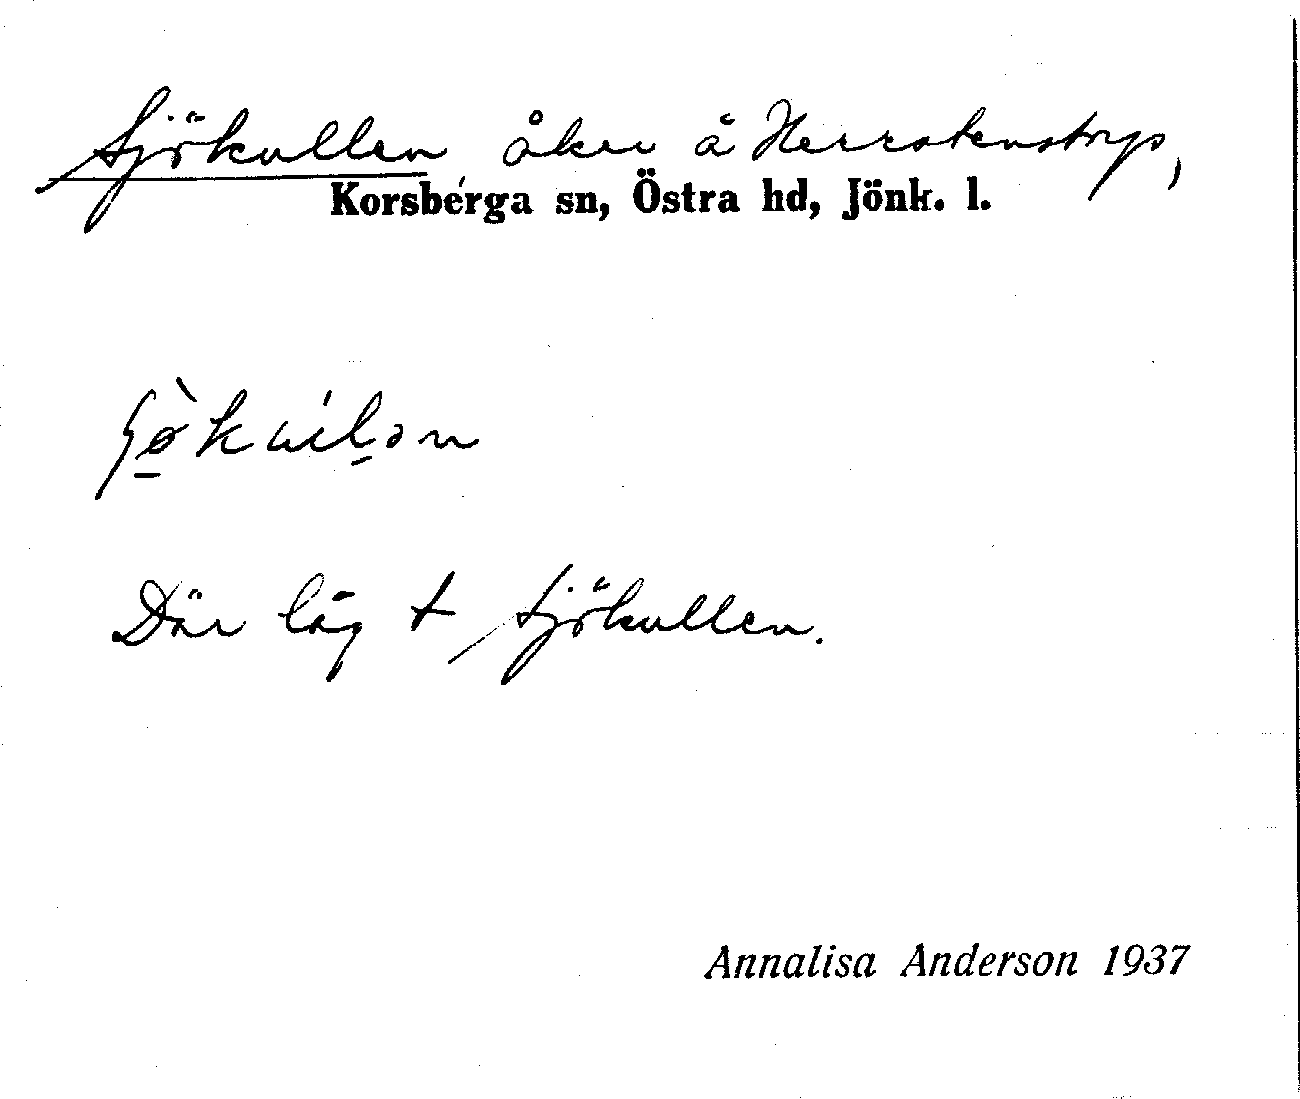 Sjökullen åker å Herrstenstorp,
Korsberga sn, Östra hd, Jönk. l.
Där låg † Sjökullen.
Annalisa Anderson 1937